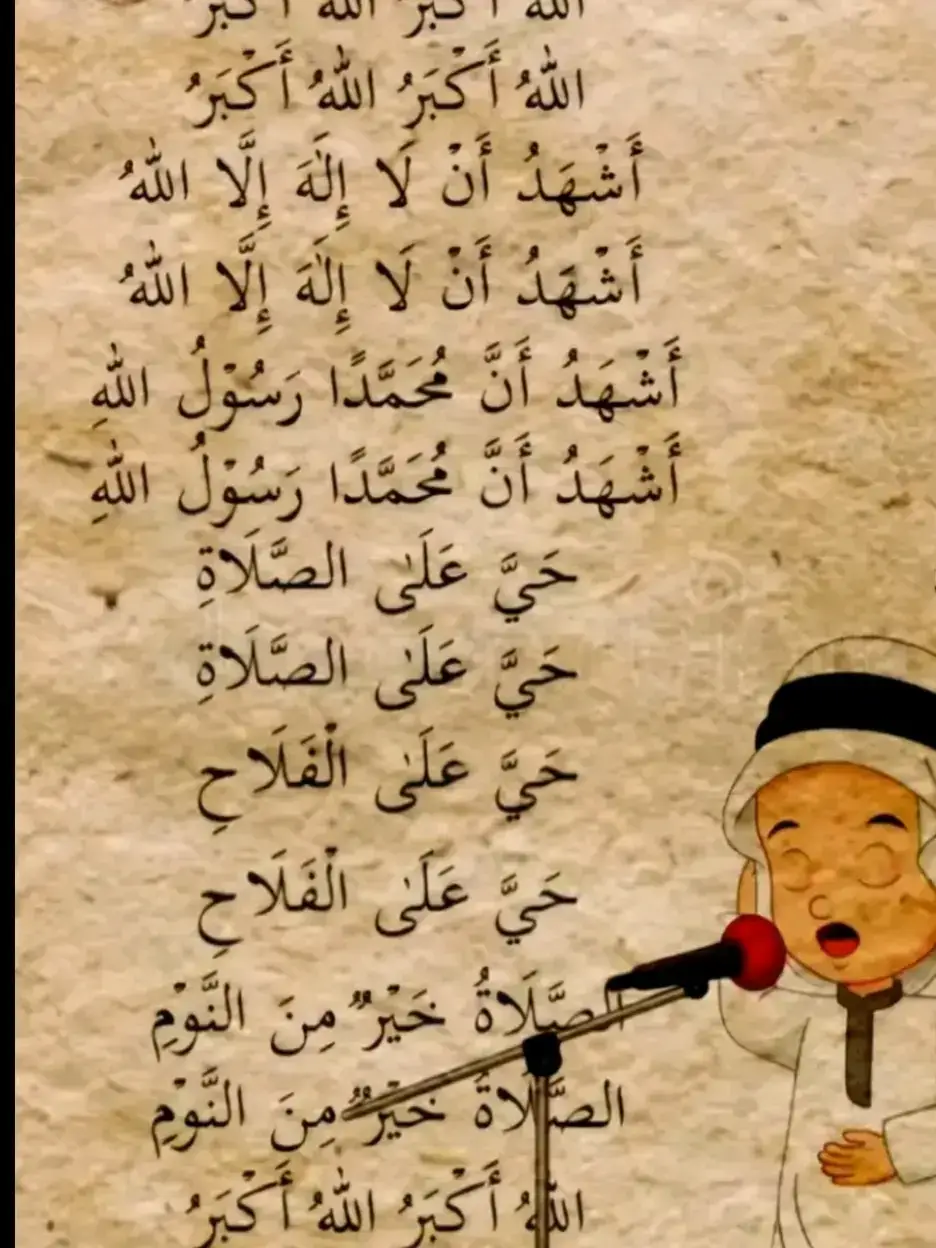 اللهُ أَكْبَرُ اللهُ أَكْبَرُ
اللهُ أَكْبَرُ اللهُ أَكْبَرُ
أَشْهَدُ أَنْ لَا إِلٰهَ إِلَّا اللهُ
أَشْهَدُ أَنْ لَا إِلٰهَ إِلَّا اللهُ
أَشْهَدُ أَنَّ مُحَمَّدًا رَسُوْلُ اللهِ
أَشْهَدُ أَنَّ مُحَمَّدًا رَسُوْلُ اللهِ
حَيَّ عَلَى الصَّلَاةِ
حَيَّ عَلَى الصَّلَاةِ
حَيَّ عَلَى الْفَلَاحِ
حَيَّ عَلَى الْفَلَاحِ
الصَّلَاةُ خَيْرٌ مِنَ النَّوْمِ
الصَّلَاةُ خَيْرٌ مِنَ النَّوْمِ
اللهُ أَكْبَرُ اللهُ أَكْبَرُ